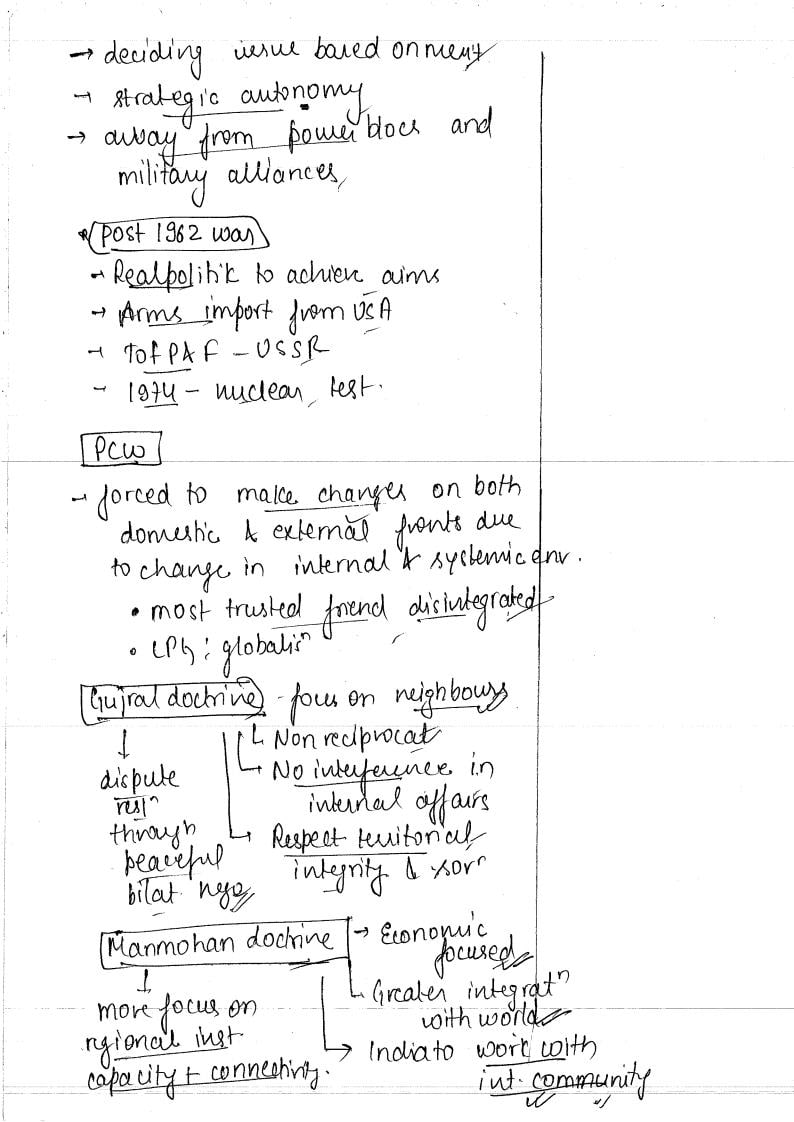 → deciding issue based on merit
→ strategic autonomy
→ away from power blocs and
military alliances
* Post 1962 war
→ Realpolitik to achieve aims
→ Arms import from USA
→ TofPAF - USSR
- 1974 - nuclear test.
PCW
→ forced to make changes on both
domestic & external fronts due
to change in internal & systemic env.
• most trusted friend disintegrated
• LPG; globalisⁿ
Gujral doctrine - focus on neighbours
↓
dispute
resⁿ
through
peaceful
bilat nego
↳ Non reciprocat
↳ No interference in
internal affairs
↳ Respect territorial
integrity & sovⁿ
Manmohan doctrine
→ Economic
focused
↳ Greater integratⁿ
with world
→ India to work with
int. community
↓
more focus on
regional inst
capacity + connectivity.